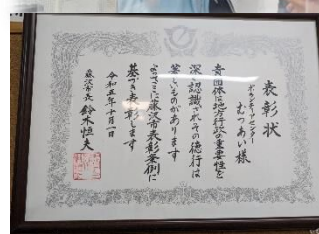 表彰状
ボランティアセンター
むつあい様
貴団体は地方行政の重要性を
深く認識されその徳行は
著しいものがあります
よってここに藤沢市表彰条例に
基づき表彰します
令和五年十月一日
藤沢市長 鈴木恒夫